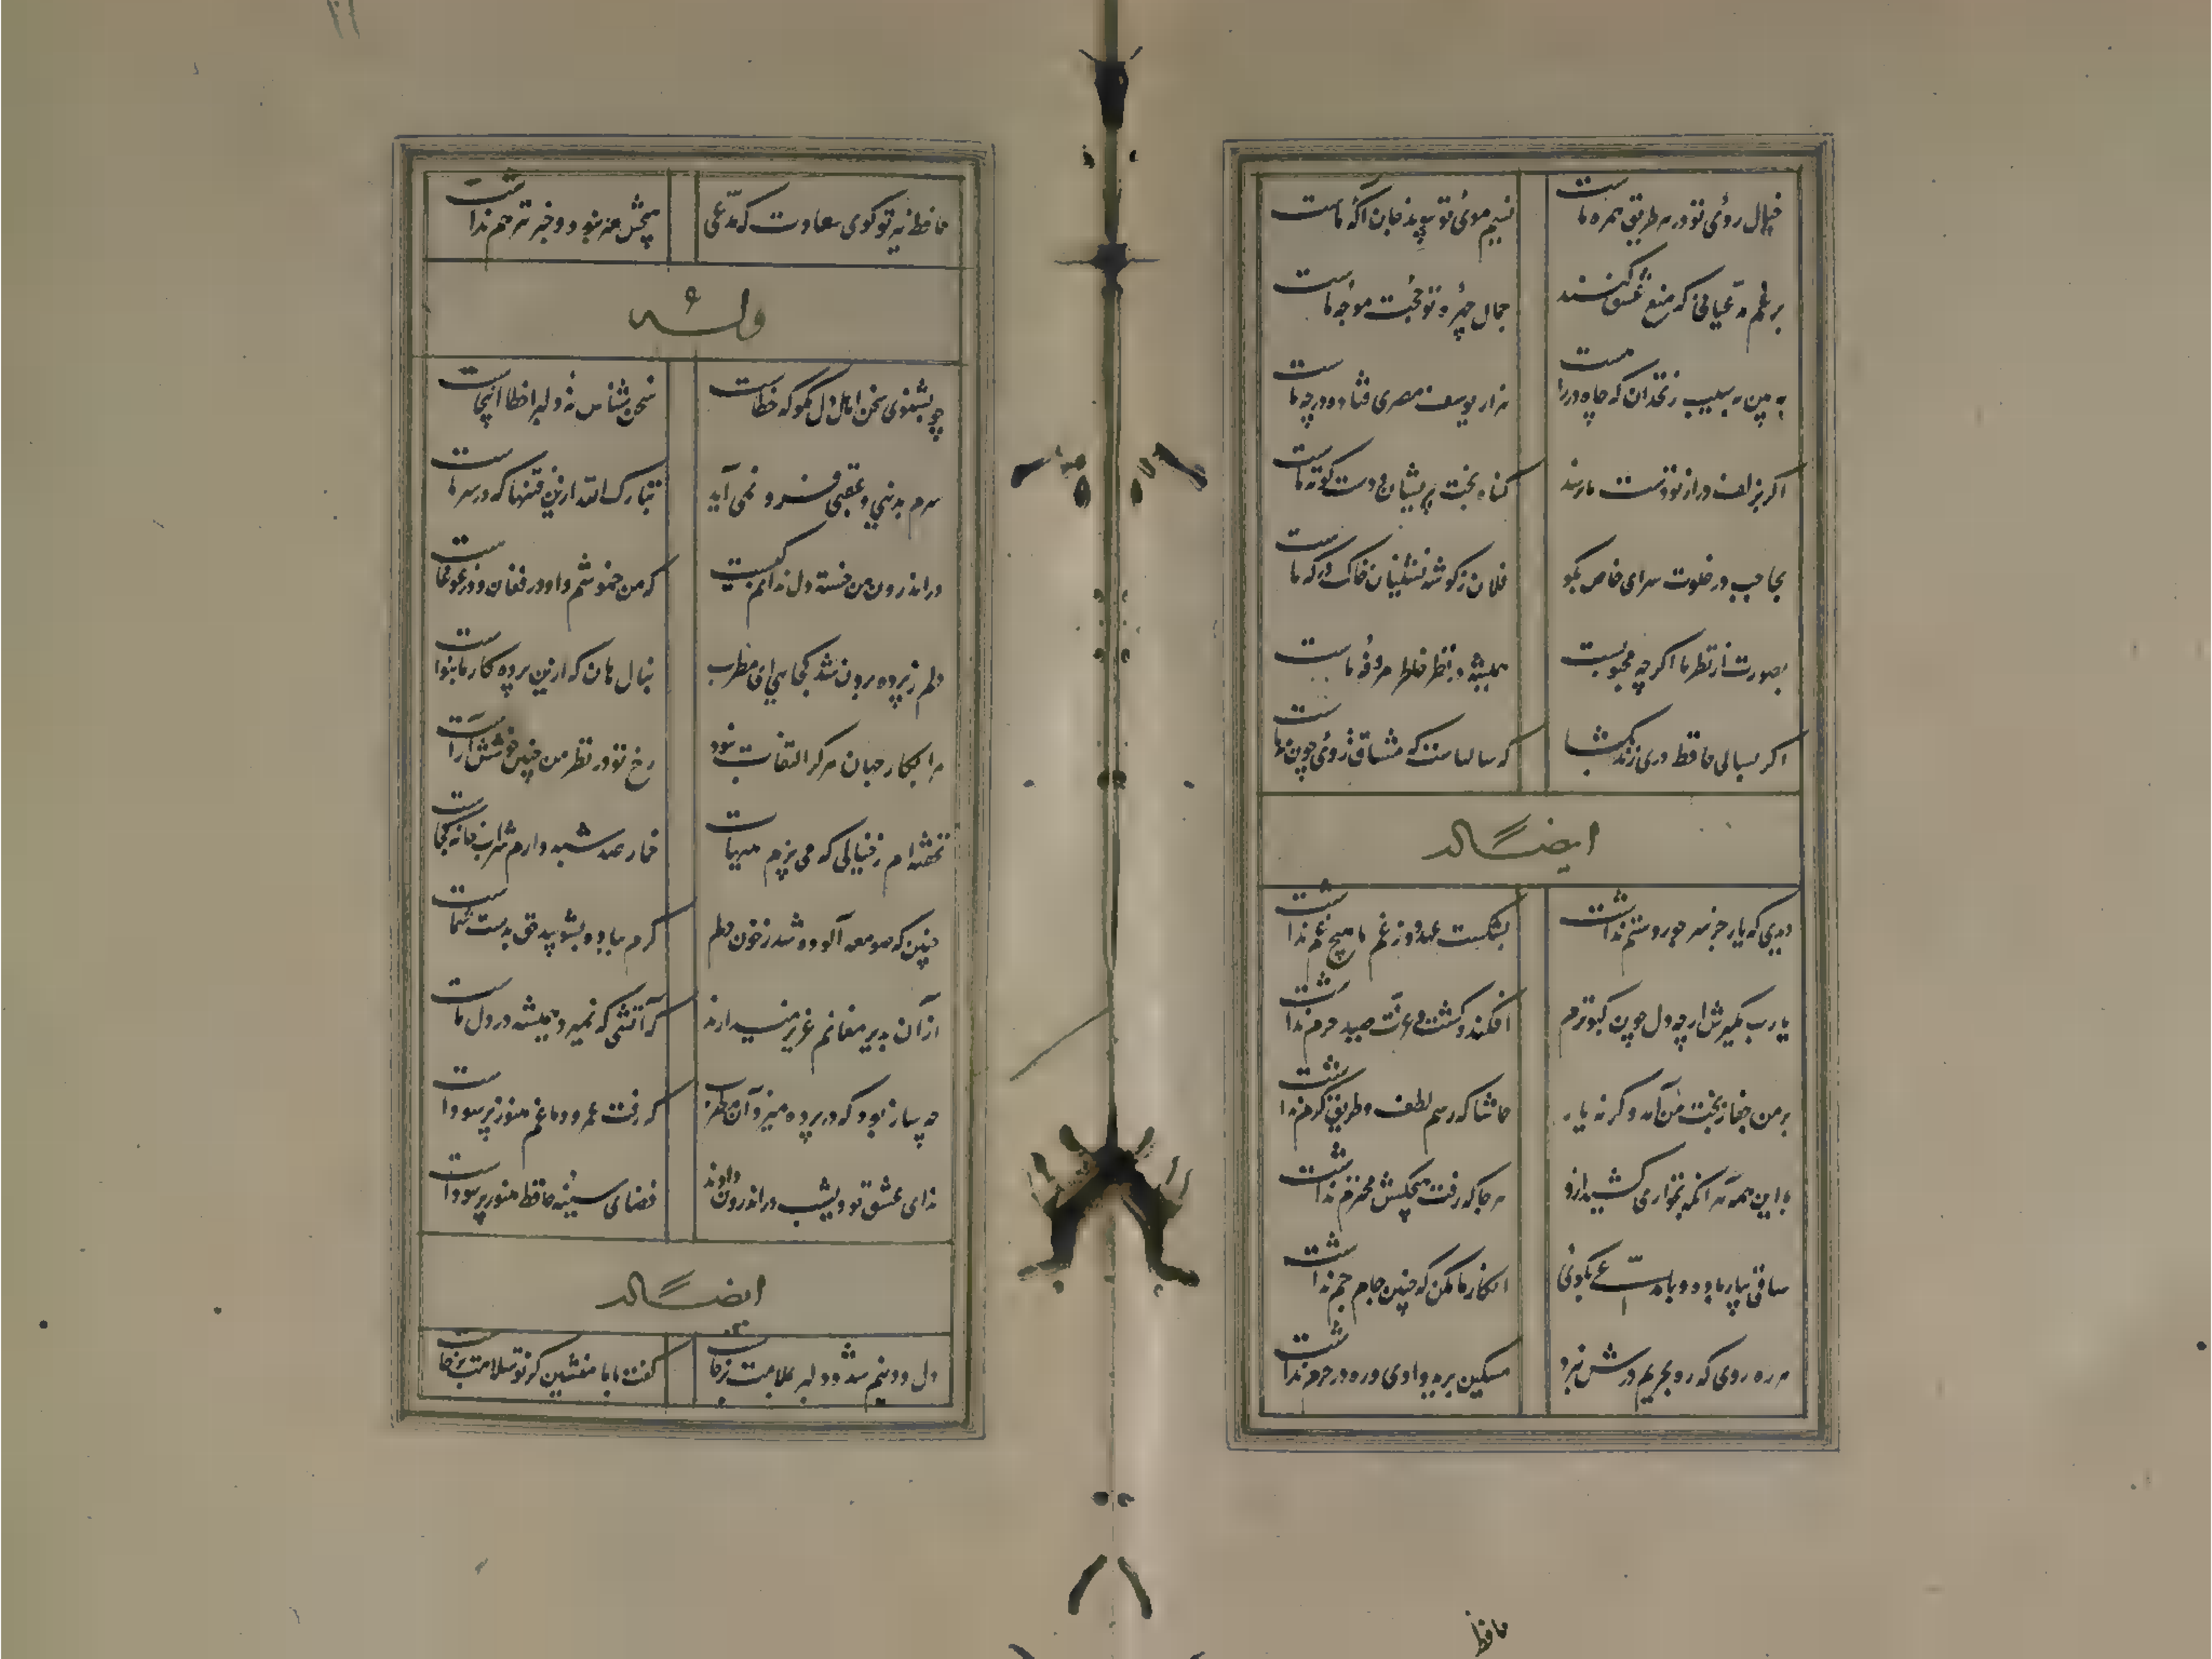 خیال روی تو در هر طریق همره ماست
نسیم موی تو پیوند جان آگه ماست
برغم مدعیانی که منع عشق کنند
جمال چهره تو حجت موجه ماست
به بین که سیب زنخدان که چاه درراست
هزار یوسف مصری فتاده در چه ماست
اکر بزلف دراز تو دست ما نرسد
کناه بخت پریشان و دست کوته ماست
بحاجب در خلوت سرای خاص بکو
فلان ز کوشه نشینان خاک درکه ماست
بصورت از نظر ما اکرچه محجوبست
همیشه در نظر خاطر مرفه ماست
اکر بسالی حافظ دری زند بکشا
که سالهاست که مشتاق روی چون مه ماست
ایضاً له
دیدی که یار جز سر جور و ستم نداشت
بشکست عهد و ز غم ما هیچ غم نداشت
یارب مکیرش ارچه دل چون کبوترم
افکند و کشت و عزت صید حرم نداشت
بر من جفا ز بخت من آمد وکرنه یار
حاشا که رسم لطف و طریق کرم نداشت
با این همه هر آنکه نخواری کشید ازو
هر جا که رفت هیچکسش محترم نداشت
ساقی بیار باده و با مدعی بکوی
انکار ما مکن که چنین جام جم نداشت
هر ره روی که ره بحریم درش نبرد
مسکین برید وادی و ره در حرم نداشت
حافظ
حافظ ببر تو کوی سعادت که مدعی
هیچش هنر نبود و خبر نیز هم نداشت
وله
چو بشنوی سخن اهل دل مکو که خطاست
سخن شناس نه دلبرا خطا اینجاست
سرم بدنیی و عقبی فرو نمی آید
تبارک الله ازین فتنها که در سر ماست
در اندرون من خسته دل ندانم کیست
که من خموشم و او در فغان و در غوغاست
دلم ز پرده برون شد کجایی ای مطرب
بنال هان که ازین پرده کار ما بنواست
مرا بکار جهان هرکز التفات نبود
رخ تو در نظر من چنین خوشش آراست
نخفته‌ام ز خیالی که می پزم شبهاست
خمار صد شبه دارم شرابخانه کجاست
چنین که صومعه آلوده شد ز خون دلم
کرم بباده بشویید حق بدست شماست
از آن بدیر مغانم عزیز میدارند
که آتشی که نمیرد همیشه در دل ماست
چه ساز بود که در پرده میزد آن مطرب
که رفت عمر و دماغم هنوز پر سوداست
ندای عشق تو دیشب در اندرون دادند
فضای سینه حافظ هنوز پر سوداست
ایضاً له
دل و دینم شد و دلبر بملامت برخاست
کفت با ما منشین کز تو سلامت برخاست